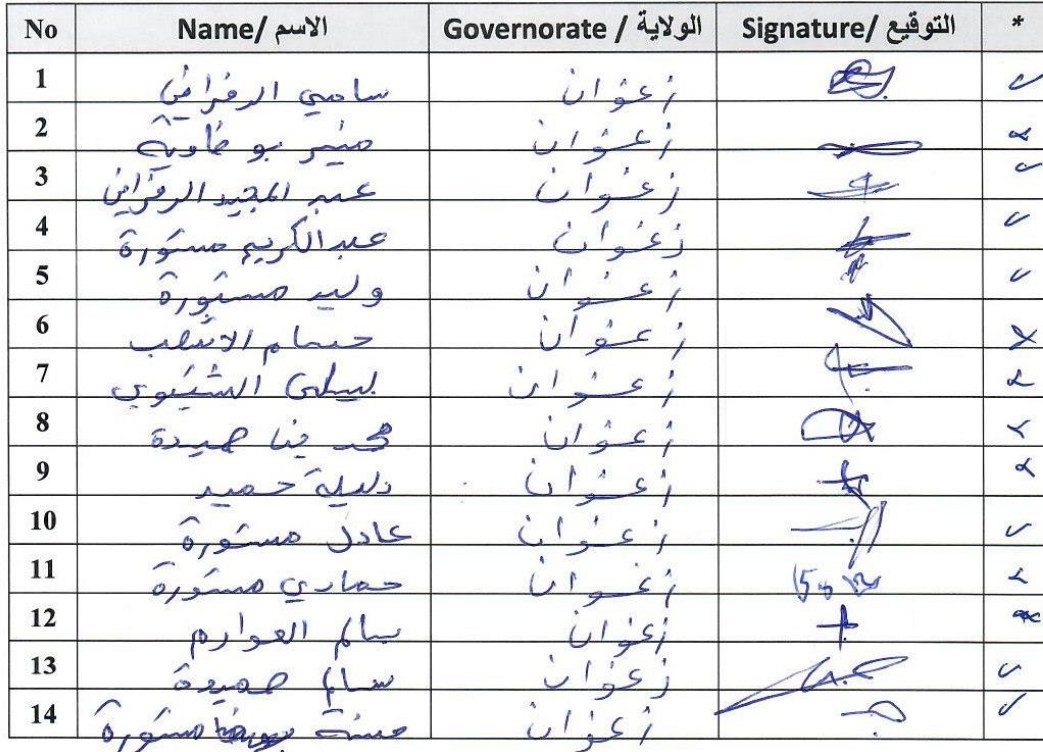 No Name/ الاسم Governorate / الولاية Signature/ التوقيع *
1 سامي الرفرافي زغوان
2 منير بو زغوان
3 عبد المجيد الرفرافي زغوان
4 عبد الكريم مستورة زغوان
5 وليد مستورة زغوان
6 حسام زغوان
7 ليلى الشتيوي زغوان
8 محمد حميدة زغوان
9 دليلة حميد زغوان
10 عادل مستورة زغوان
11 حمادي مستورة زغوان
12 سالم العوارم زغوان
13 سالم حميدة زغوان
14 مستورة زغوان